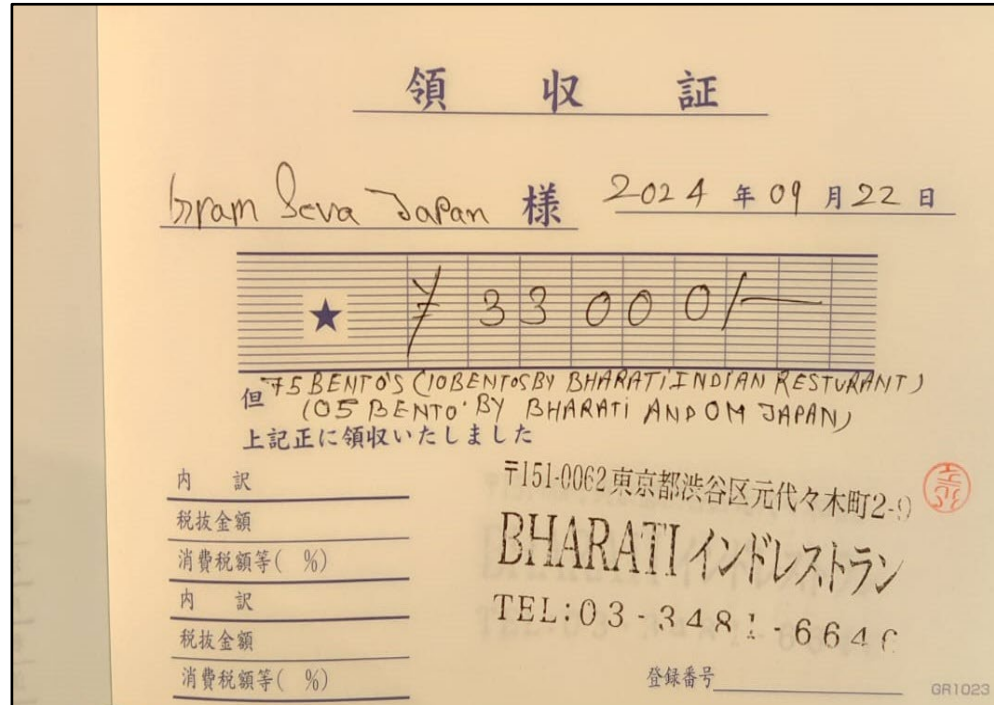 領 収 証
Gram Seva Japan 様 2024 年 09 月 22 日
★ ¥ 33000/-
但 75 BENTO'S (10 BENTOS BY BHARATI INDIAN RESTURANT)
(05 BENTO' BY BHARATI AND OM JAPAN)
上記正に領収いたしました
内 訳
税抜金額
消費税額等( %)
内 訳
税抜金額
消費税額等( %)
〒151-0062 東京都渋谷区元代々木町2-9
BHARATI インドレストラン
TEL:03-3481-6646
登録番号
GR1023